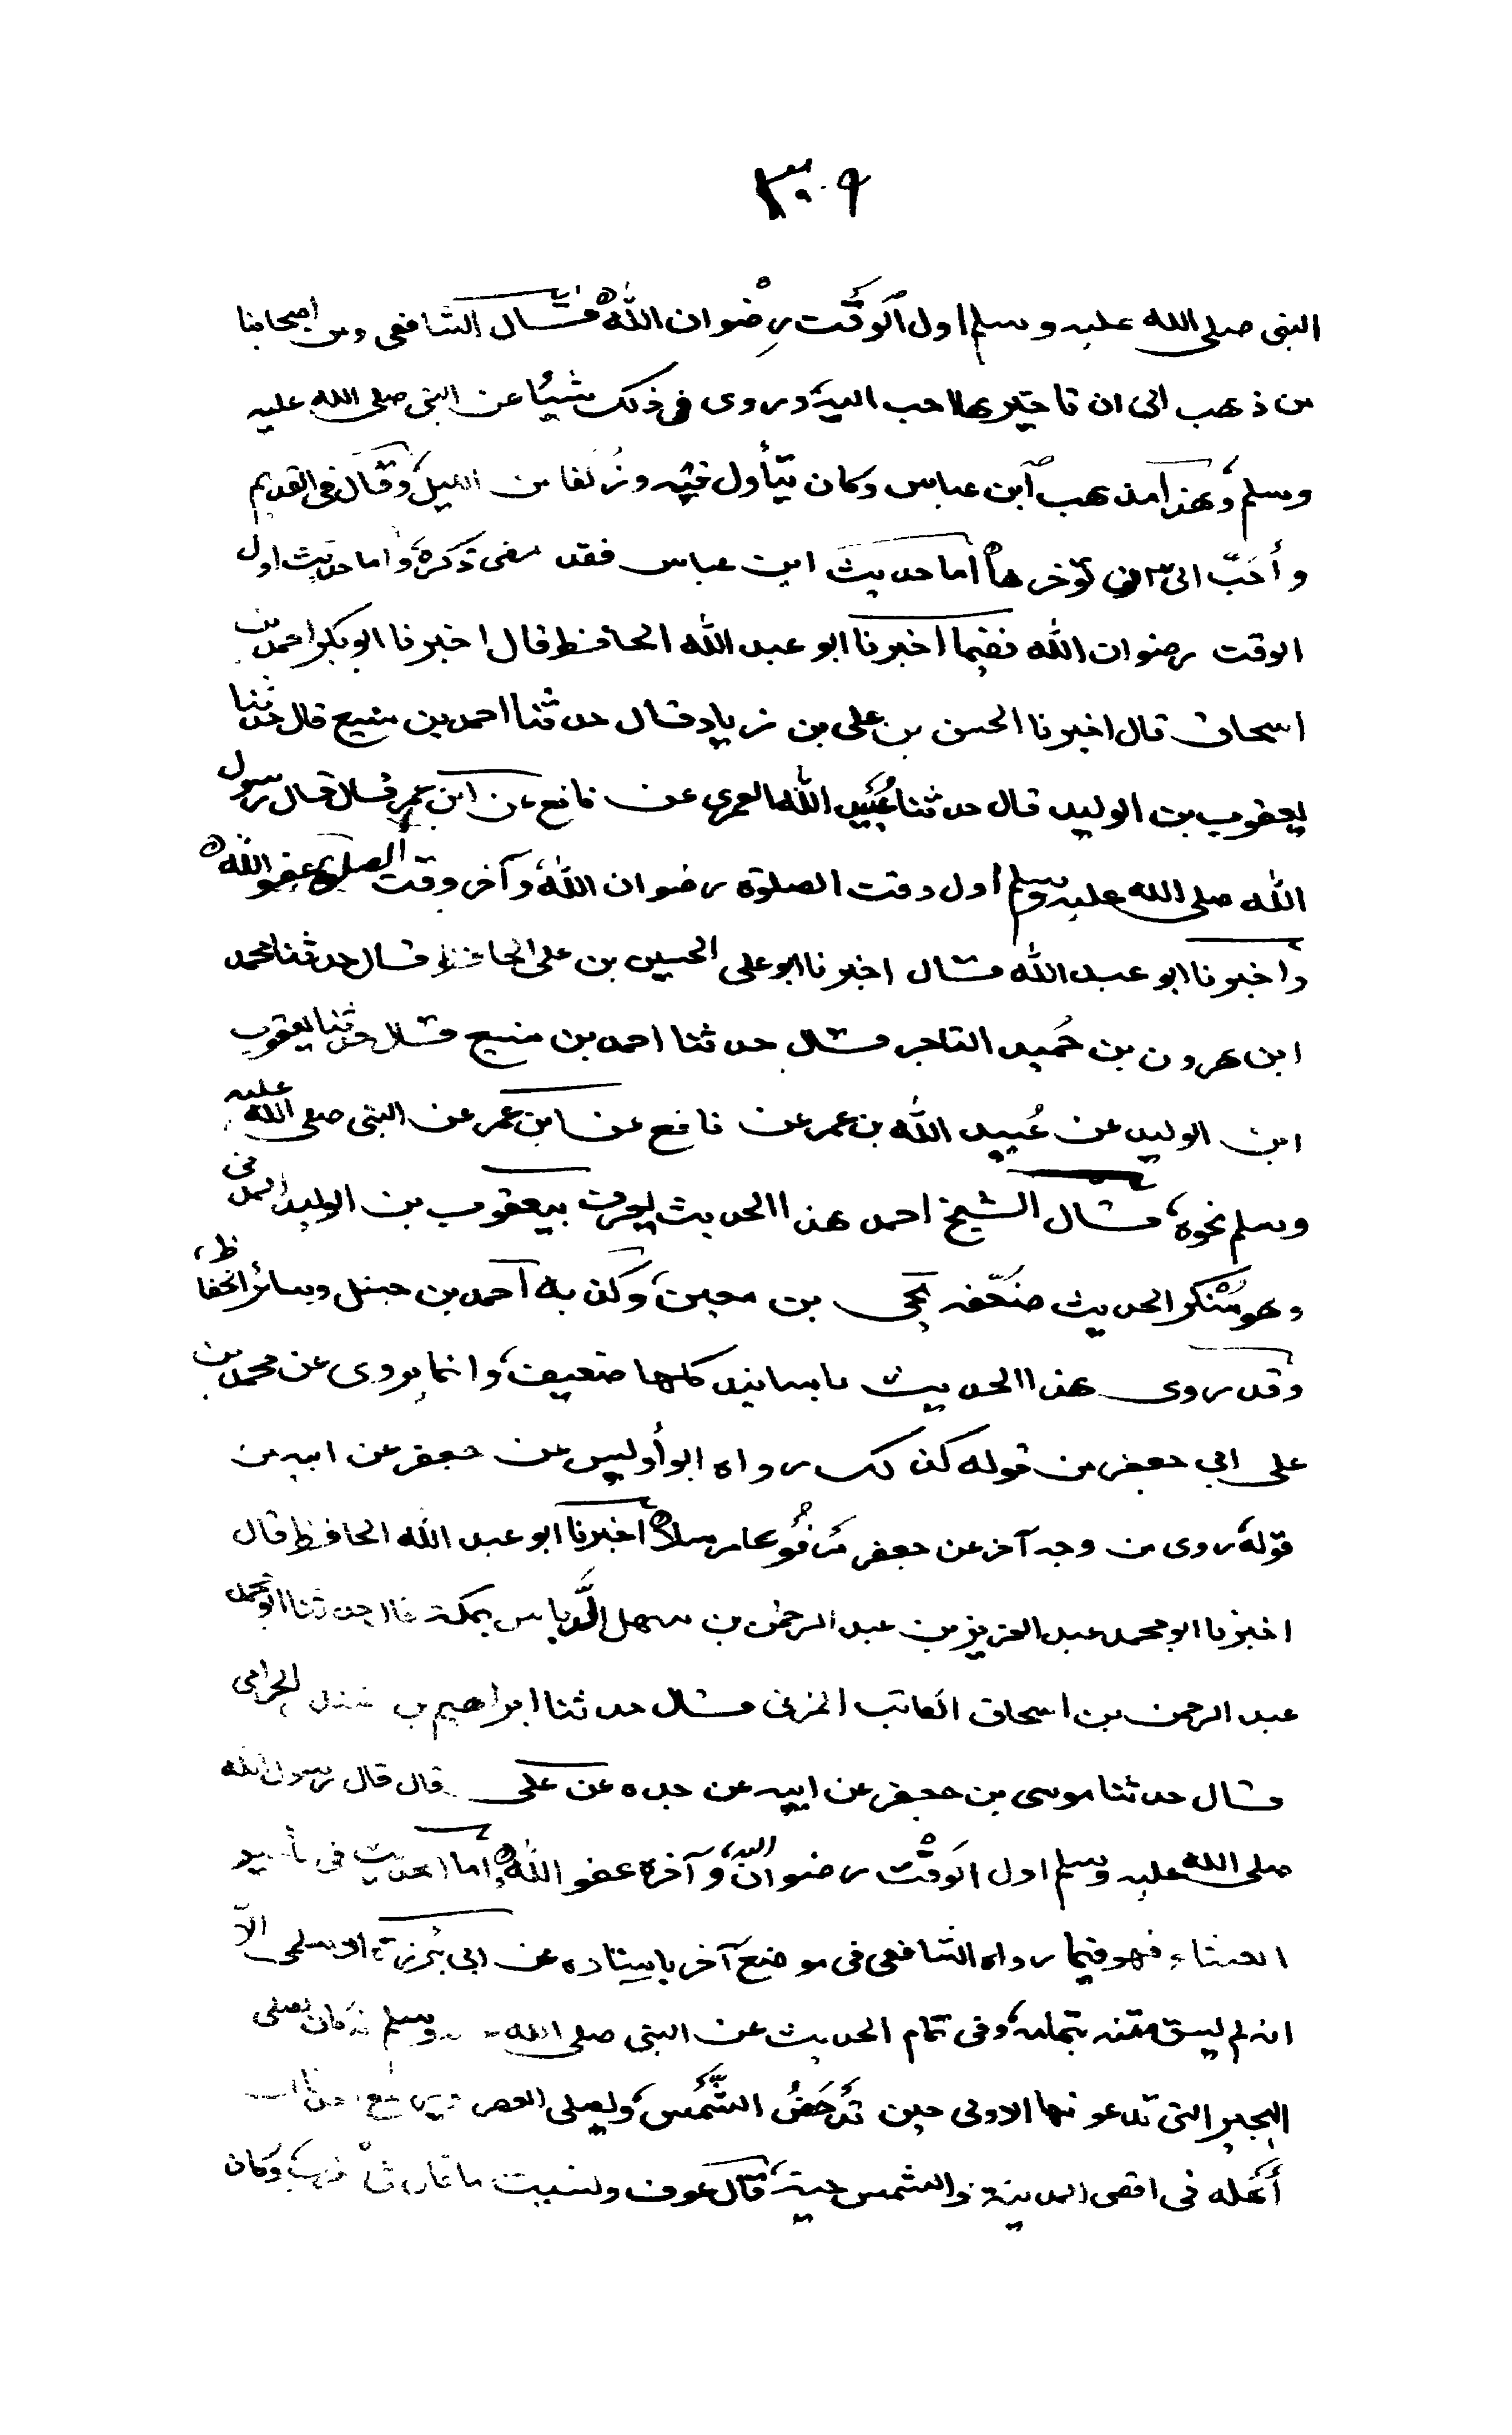 ٣٠٩
النبي صلى الله عليه وسلم اول الوقت رضوان الله قال الشافعي ومن اصحابنا
من ذهب الى ان تاخيرها احب اليه وروى في ذلك شيئا عن النبي صلى الله عليه
وسلم وهذا مذهب ابن عباس وكان يتأول فيه وزلفا من الليل وقال في القديم
وأحَبّ الىّ ان تؤخرها اما حديث ابن عباس فقد مضى ذكره واما حديث اول
الوقت رضوان الله ففيما اخبرنا ابو عبد الله الحافظ قال اخبرنا ابو بكر احمد بن
اسحاق قال اخبرنا الحسن بن على بن زياد قال حدثنا احمد بن منيع قال حدثنا
يعقوب بن الوليد قال حدثنا عُبَيد الله العمرى عن نافع عن ابن عمر قال قال رسول
الله صلى الله عليه وسلم اول وقت الصلوة رضوان الله وآخر وقت الصلوة عفو الله
واخبرنا ابو عبد الله قال اخبرنا ابو على الحسين بن على الحافظ قال حدثنا محمد
ابن هرون بن حُميد التاجر قال حدثنا احمد بن منيع قال حدثنا يعقوب
ابن الوليد عن عُبيد الله بن عمر عن نافع عن ابن عمر عن النبي صلى الله عليه
وسلم نحوه قال الشيخ احمد هذا الحديث يعرف بيعقوب بن الوليد المدنى
وهو مُنكر الحديث ضعّفه يحيى بن معين وكذبه احمد بن حنبل وسائر الحفاظ
وقد روى هذا الحديث باسانيد كلها ضعيفة وانما يروى عن محمد بن
على ابي جعفر من قوله كذلك رواه ابو أويس عن جعفر عن ابيه من
قوله روى من وجه آخر عن جعفر مَرفُوعا مرسلا اخبرنا ابو عبد الله الحافظ قال
اخبرنا ابو محمد عبد العزيز بن عبد الرحمن بن سهل الدَّباس بمكة قال حدثنا ابو محمد
عبد الرحمن بن اسحاق الكاتب المزنى قال حدثنا ابراهيم بن المنذر الحزامى
قال حدثنا موسى بن جعفر عن ابيه عن جده عن على قال قال رسول الله
صلى الله عليه وسلم اول الوقت رضوان الله وآخره عفو الله واما الحديث في تأخير
العشاء فهو فيما رواه الشافعي في موضع آخر باسناده عن ابي بَرزة الاسلمى الاّ
انه لم يسق متنه بتمامه وفى تمام الحديث عن النبي صلى الله وسلم انه كان يصلى
الهجير التى تدعونها الاولى حين تَدحَضُ الشَّمس ويصلى العصر
أهله فى اقصى المدينة والشمس حية قال عوف ونسيت ما قال فى المغرب وكان